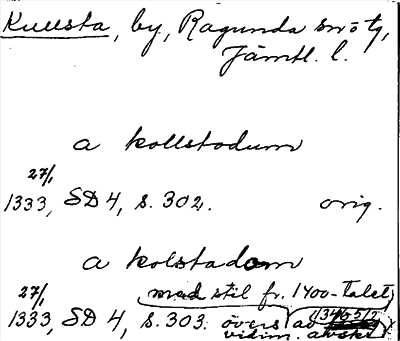 Kullsta, by, Ragunda sn o tg,
Jämtl. l.
a kollstodum
27/1
1333, SD 4, s. 302. orig.
a kolstadom
27/1 med stil fr. 1400-talet
1333, SD 4, s. 303. övers av
vidim. avskr.